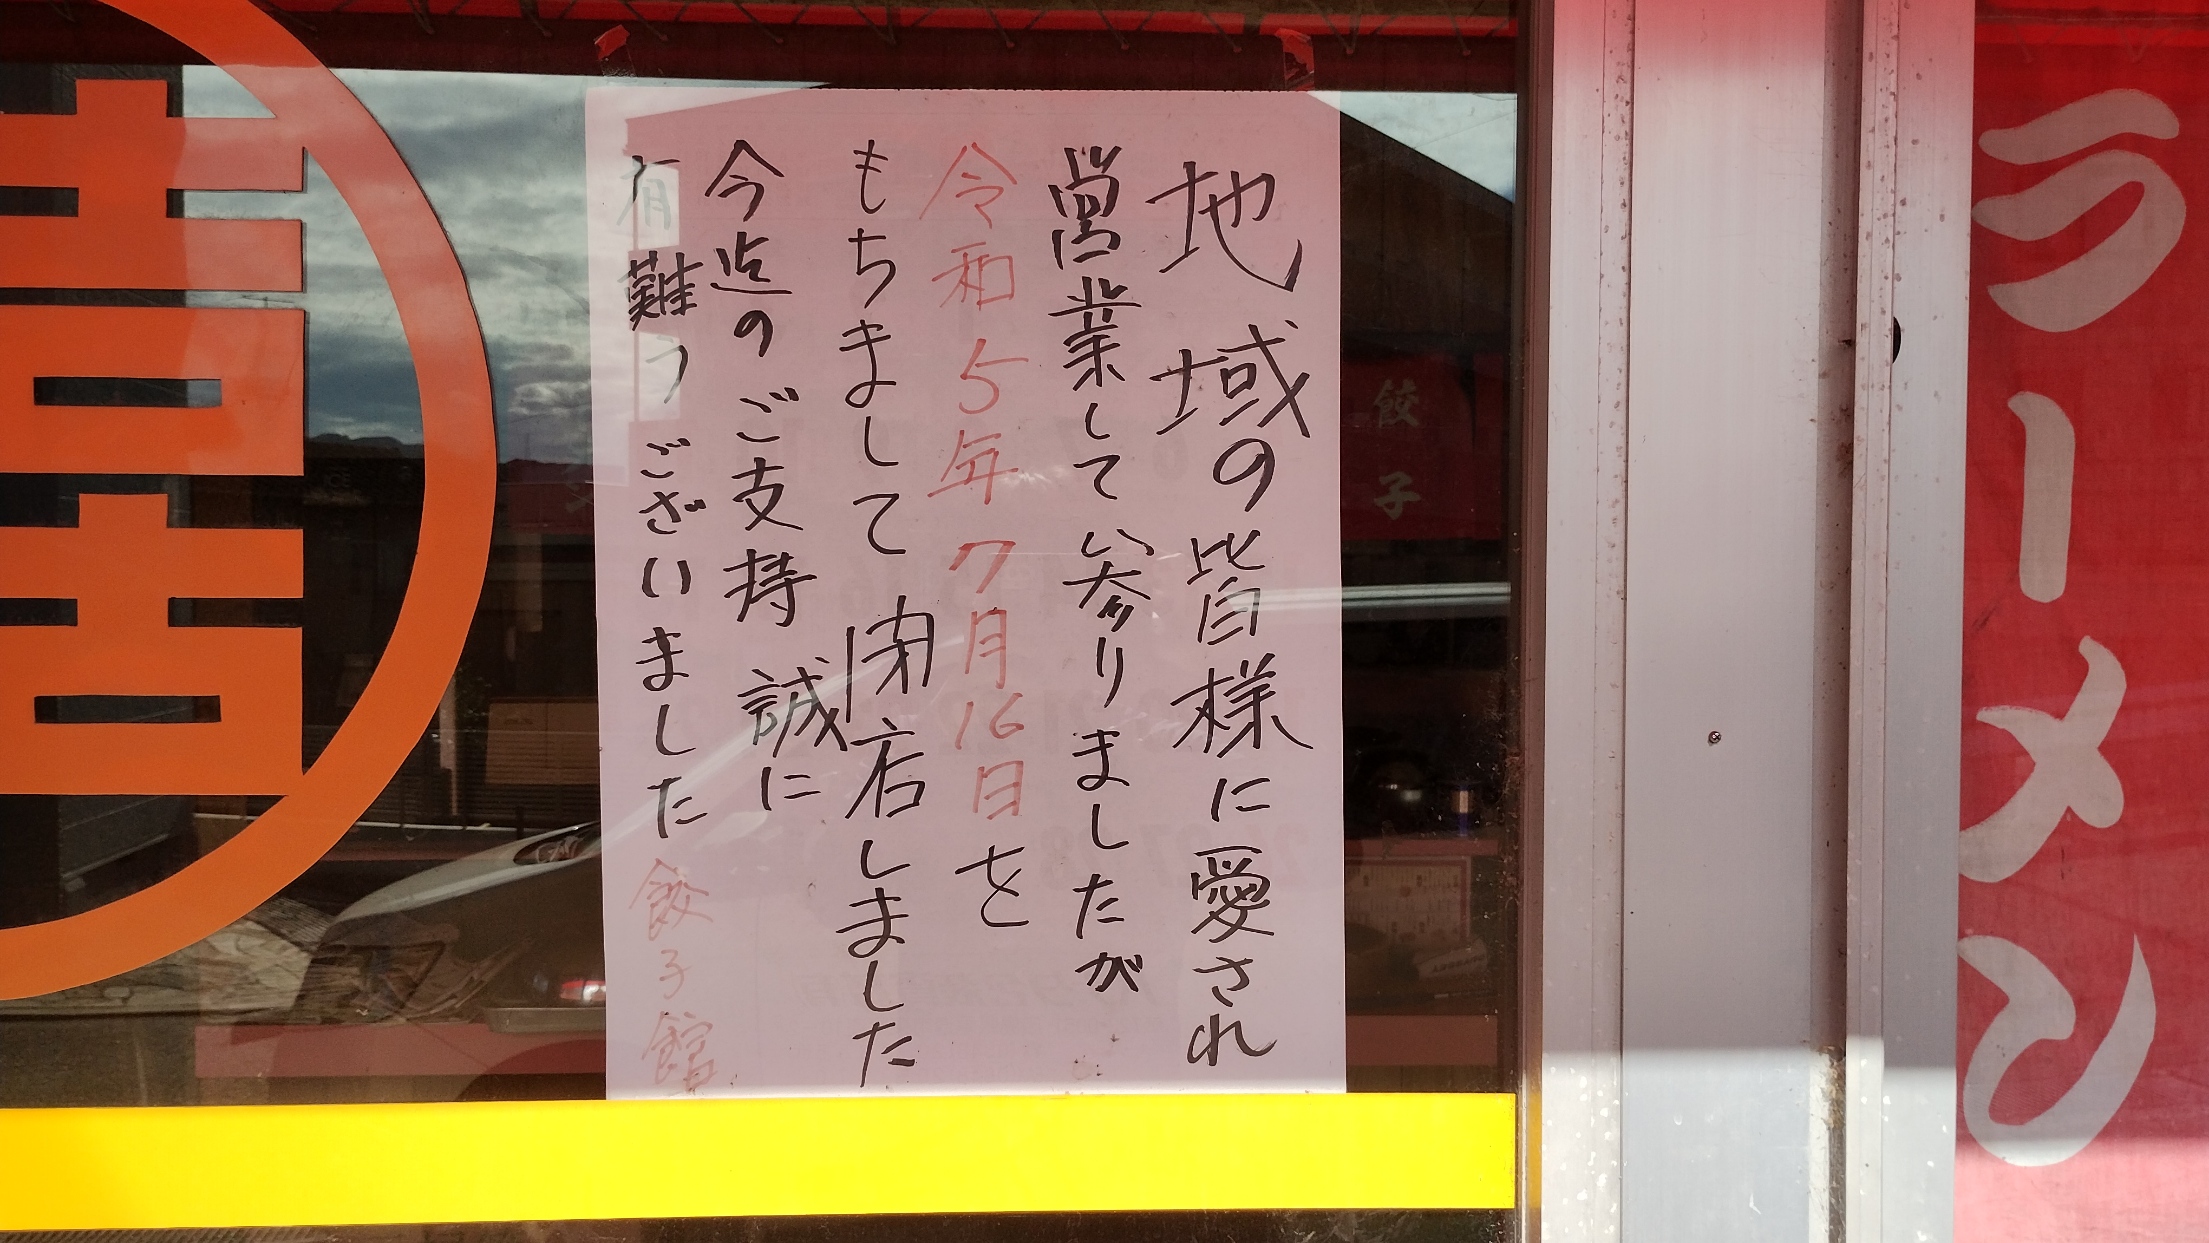 地域の皆様に愛され
営業してい参りましたが
令和5年7月16日を
もちまして閉店しました
今迄のご支持誠に
有難うございました 餃子館
ラーメン
餃子
囍